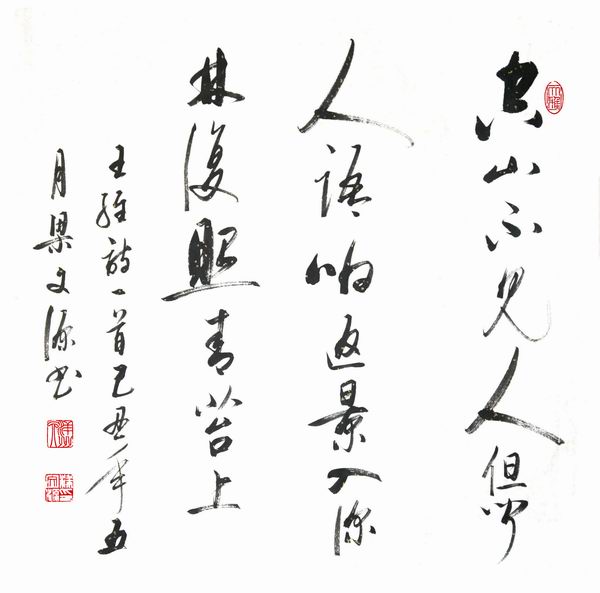 空山不見人但聞
人語响返景入深
林復照青苔上
王維詩一首己丑年五
月文书